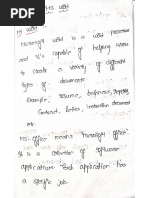 MS Word
MS word
Microsoft word is a word processor
and it's capable of helping users
to create a variety of different
types of documents
Example, resume, business, reports,
Contract, letters, instruction document
etc.
MS-office means "Microsoft office"
It is a collection of software
applications Each application has
a specific job.